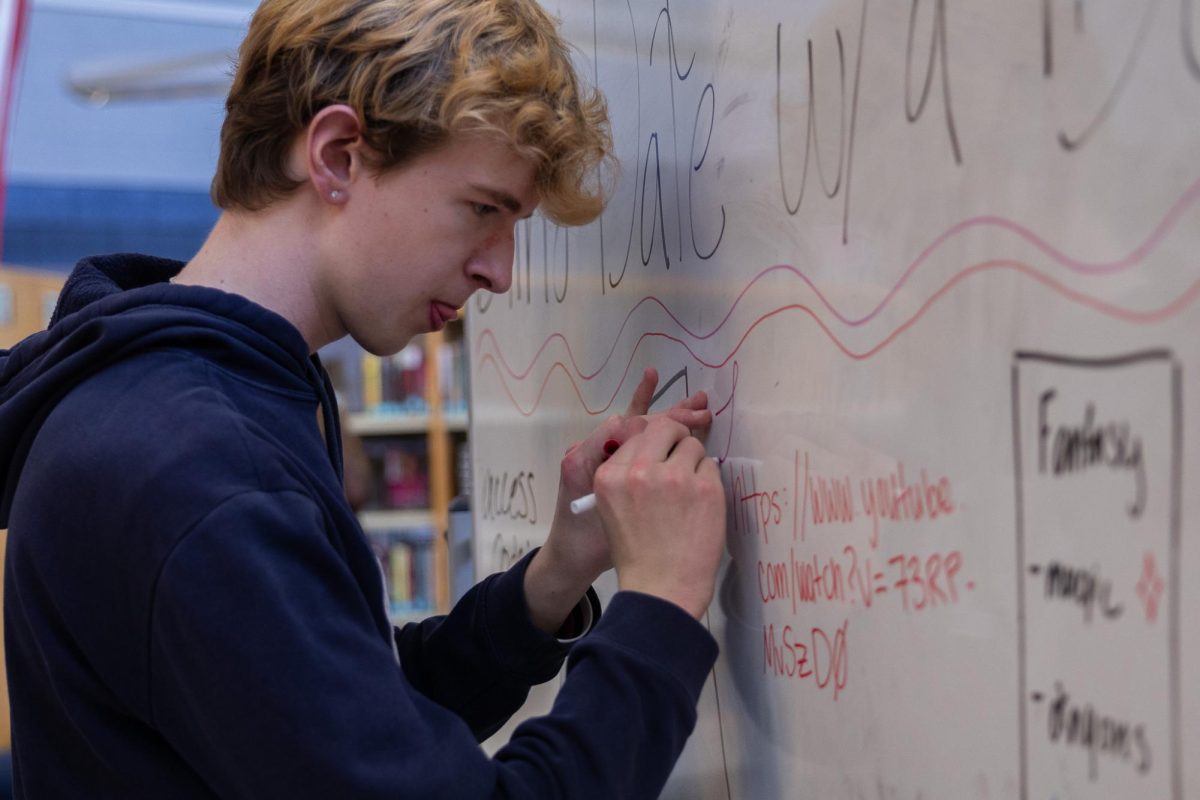 Date w/ a
access
https://www.youtube.
com/watch?v=73RP-
MvSzDØ
Fantasy
- magic
- dragons